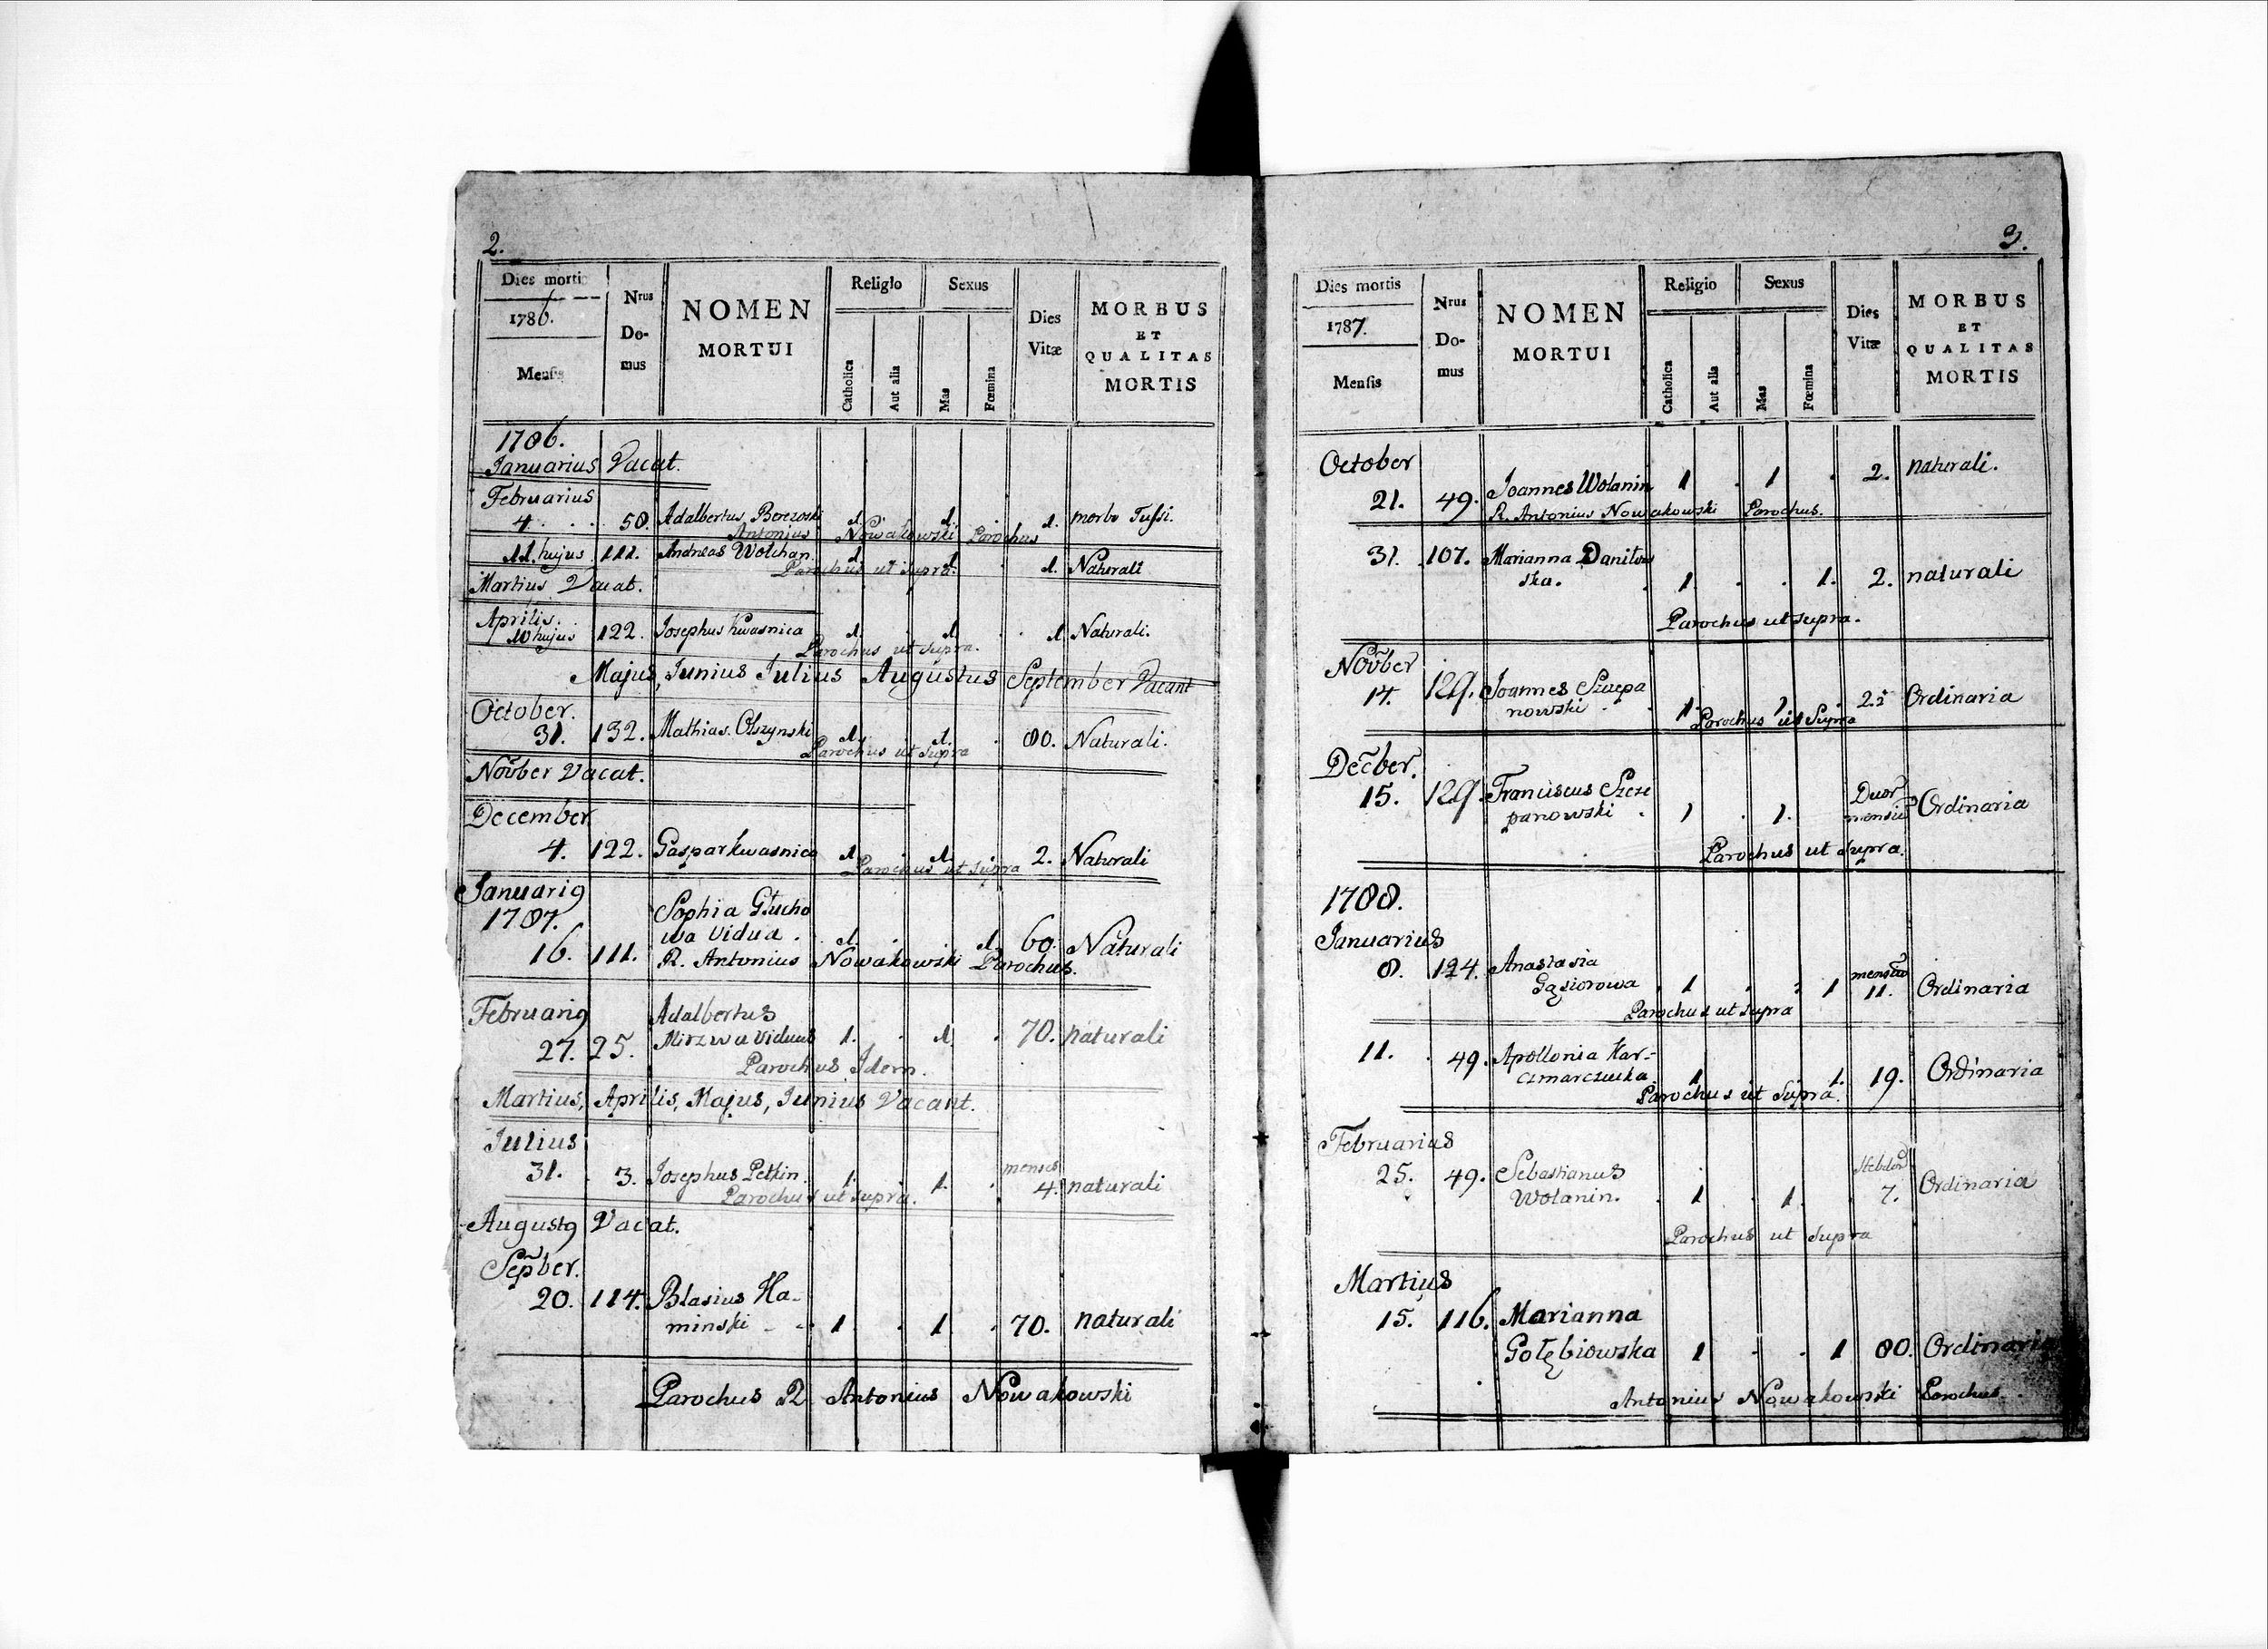 2.
Dies mortis
1786.
Mensis
Nrus Domus
NOMEN MORTUI
Religio
Catholica
Aut alia
Sexus
Mas
Fœmina
Dies Vitæ
MORBUS ET QUALITAS MORTIS
1786.
Januarius Vacat.
Februarius
4. 50 Adalbertus 1. 1. 1. morbo Tussi.
Antonius Nowakowski Parochus
11. hujus 111. Andreas Wolchan 1. 1. 1. Naturali
Parochus ut supra.
Martius Vacat.
Aprilis.
10 hujus 122. Josephus Kwasnica 1. 1. 1 Naturali.
Parochus ut supra.
Majus, Junius Julius Augustus September Vacant
October.
31. 132. Mathias Olszynski 1. 1. 80. Naturali.
Parochus ut supra
Nov̄ber Vacat.
December
4. 122. Gaspar Kwasnica 1. 1. 2. Naturali
Parochus ut supra
Januari9
1787.
Sophia Głucho
wa Vidua.
16. 111. 1. 1. 60. Naturali
R. Antonius Nowakowski Parochus.
Februari9 Adalbertus
27. 25. Mirzwa Viduus 1. 1 70. naturali
Parochus Idem.
Martius, Aprilis, Majus, Junius Vacant.
Julius
menses
31. 3. Josephus Petkin 1. 1. 4. naturali
Parochus ut supra.
August9 Vacat.
Sep̄ber.
20. 114. Blasius Ka-
minski 1 1 70. naturali
Parochus R Antonius Nowakowski
3.
Dies mortis
1787.
Mensis
Nrus Domus
NOMEN MORTUI
Religio
Catholica
Aut alia
Sexus
Mas
Fœmina
Dies Vitæ
MORBUS ET QUALITAS MORTIS
October
21. 49. Joannes Wolanin 1 1 2. naturali.
R. Antonius Nowakowski Parochus.
31. 107. Marianna Danitow
ska. 1 1. 2. naturali
Parochus ut supra.
Nov̄ber
14. 129. Joannes Szczepa
nowski 1. 1 Ordinaria
Parochus ut Supra
Dec̄ber.
15. 129. Franciscus Szcze
panowski 1 1. Ordinaria
Parochus ut supra.
1788.
Januarius
8. 124. Anastasia
Gąsiorowa 1 1 11. Ordinaria
Parochus ut supra
11. 49. Apollonia Kar-
czmarczucka 1 1. 19. Ordinaria
Parochus ut supra.
Februarius
25. 49. Sebastianus
Wolanin. 1 1 7. Ordinaria
Parochus ut supra
Martius
15. 116. Marianna
Gołębiowska 1 1 80. Ordinaria
Antonius Nowakowski Parochus.